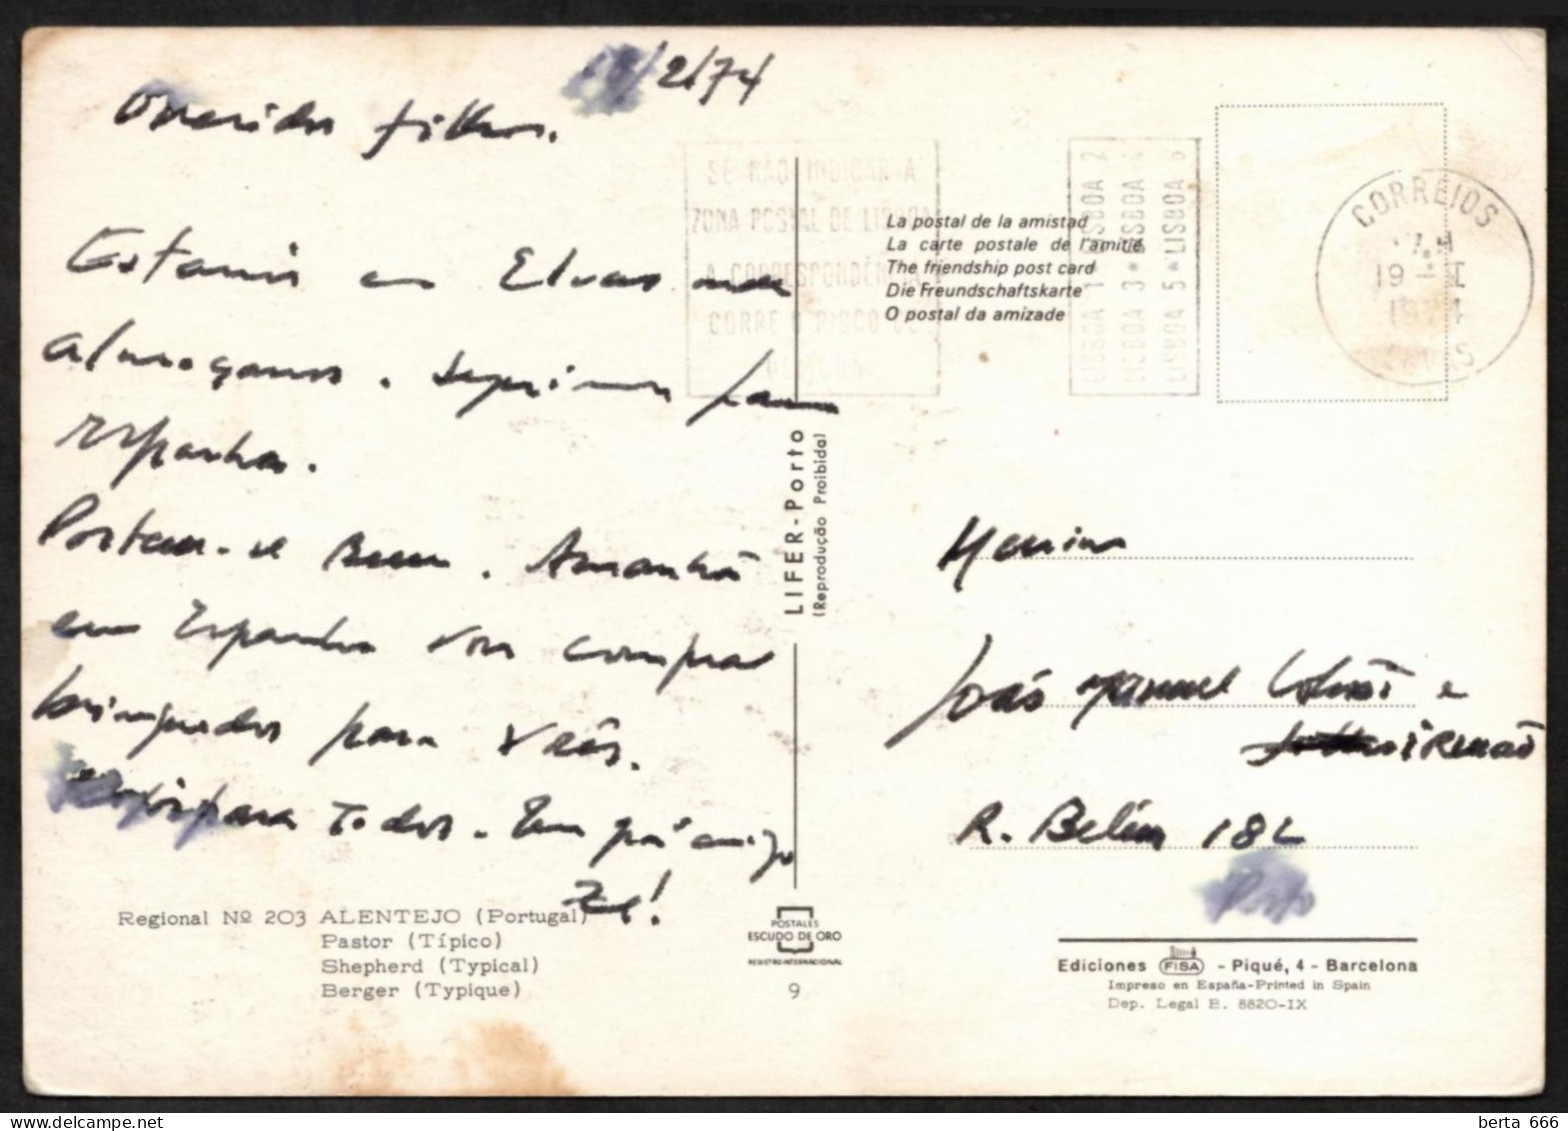 /2/74
Queridos filhos.
Estamos em Elvas onde
almoçamos. Seguimos para
Espanha.
Portem-se Bem. Amanhã
em Espanha vou comprar
brinquedos para vocês.
para Todos. Um
Zé!
Regional Nº 203 ALENTEJO (Portugal)
Pastor (Típico)
Shepherd (Typical)
Berger (Typique)
SE NÃO INDICAR A
ZONA POSTAL DE LISBOA
A CORRESPONDÊNCIA
CORRE O RISCO DE
LISBOA 1 LISBOA 2
LISBOA 3 * LISBOA 4
LISBOA 5 * LISBOA 6
CORREIOS
19
La postal de la amistad
La carte postale de l'amitié
The friendship post card
Die Freundschaftskarte
O postal da amizade
LIFER-Porto
(Reprodução Proibida)
POSTALES
ESCUDO DE ORO
REGISTRO INTERNACIONAL
9
Manuel e
R. Belém 182
Porto
Ediciones FISA - Piqué, 4 - Barcelona
Impreso en España-Printed in Spain
Dep. Legal B. 8820-IX
berta 666